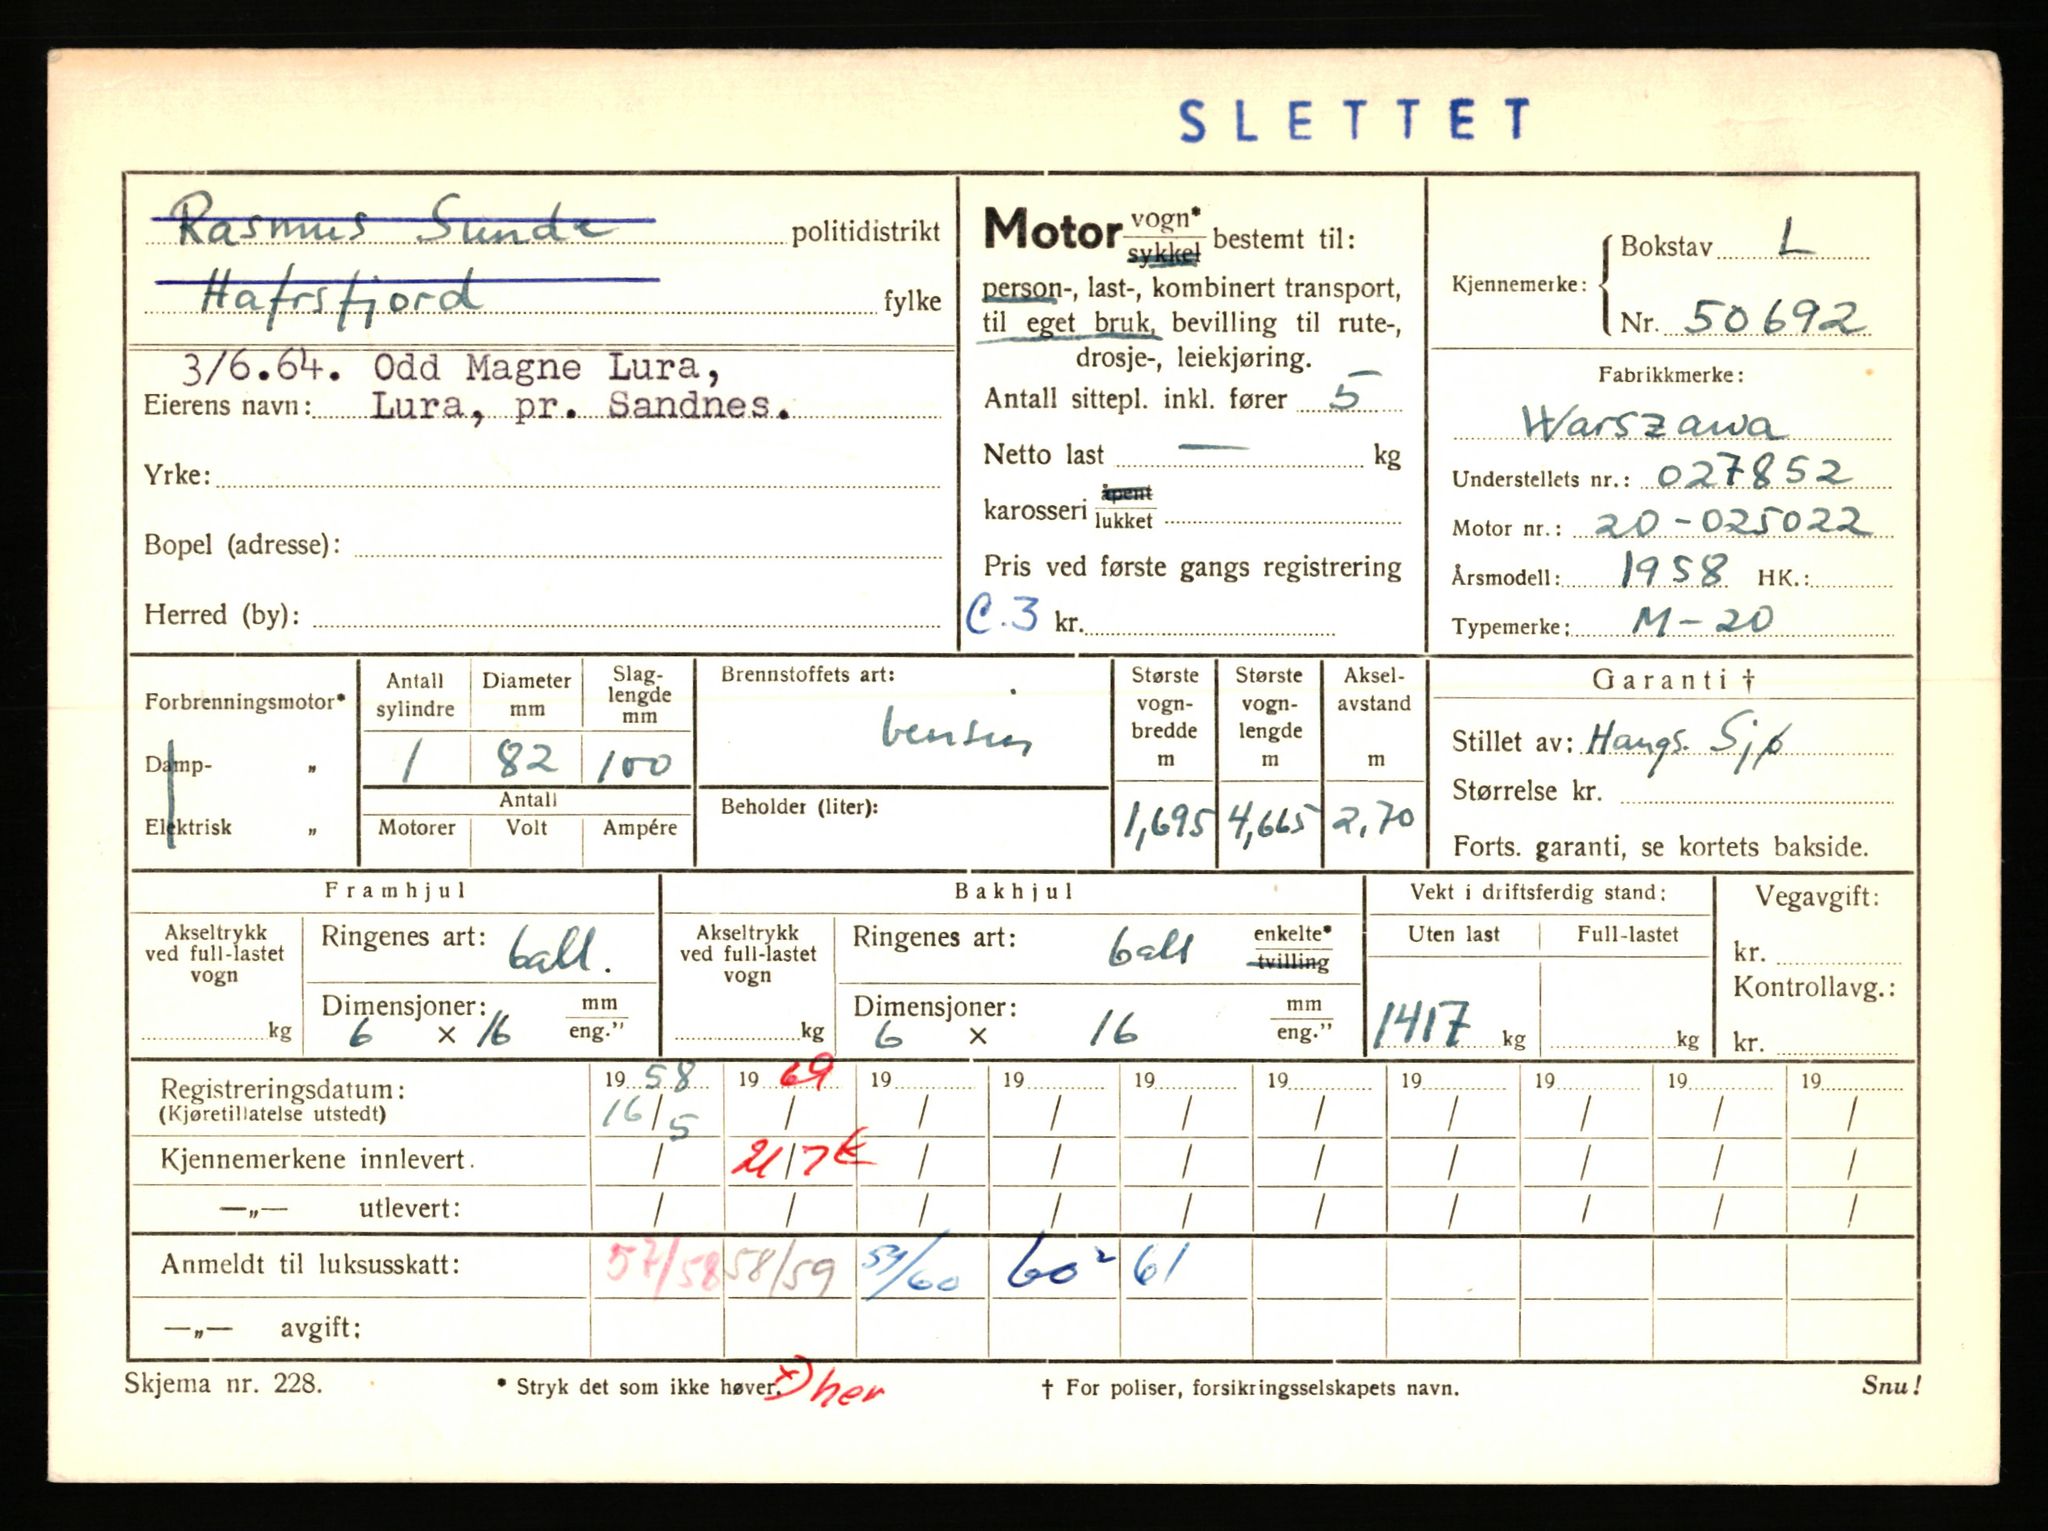 SLETTET
Rasmus Sunde politidistrikt
Hafrsfjord fylke
3/6.64. Odd Magne Lura,
Eierens navn: Lura, pr. Sandnes.
Yrke:
Bopel (adresse):
Herred (by):
Motor vogn* sykkel bestemt til:
person-, last-, kombinert transport,
til eget bruk, bevilling til rute-,
drosje-, leiekjøring.
Antall sittepl. inkl. fører 5
Netto last — kg
karosseri åpent lukket
Pris ved første gangs registrering
C.3 kr.
Kjennemerke: Bokstav L
Nr. 50692
Fabrikkmerke:
Warszawa
Understellets nr.: 027852
Motor nr.: 20-025022
Årsmodell: 1958 HK.:
Typemerke: M-20
Forbrenningsmotor*
Damp- "
Elektrisk "
Antall sylindre
Diameter mm
Slag-lengde mm
1 82 100
Antall
Motorer Volt Ampére
Brennstoffets art:
bensin
Beholder (liter):
Største vogn-bredde m
1,695
Største vogn-lengde m
4,665
Aksel-avstand m
2,70
Garanti †
Stillet av: Haugs. Sjø
Størrelse kr.
Forts. garanti, se kortets bakside.
Framhjul
Akseltrykk ved full-lastet vogn
kg
Ringenes art: ball.
Dimensjoner: mm
6 × 16 eng."
Bakhjul
Akseltrykk ved full-lastet vogn
kg
Ringenes art: ball enkelte* tvilling
Dimensjoner: mm
6 × 16 eng."
Vekt i driftsferdig stand:
Uten last Full-lastet
1417 kg kg
Vegavgift:
kr.
Kontrollavg.:
kr.
Registreringsdatum: 19 58 19 69 19 19 19 19 19 19 19 19
(Kjøretillatelse utstedt) 16/5 / / / / / / / / /
Kjennemerkene innlevert. / 21/7 / / / / / / / /
—„— utlevert: / / / / / / / / / /
Anmeldt til luksusskatt: 57/58 58/59 59/60 60² 61
—„— avgift:
Skjema nr. 228. * Stryk det som ikke høver. ×) her † For poliser, forsikringsselskapets navn. Snu!